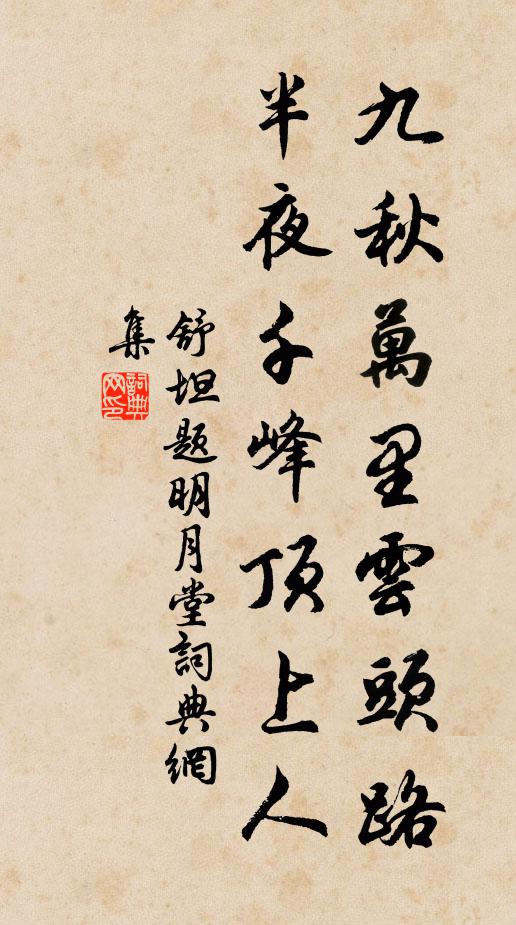 九秋萬里雲頭路
半夜千峰頂上人
舒坦题明月堂詞典網
集
詞典
网印